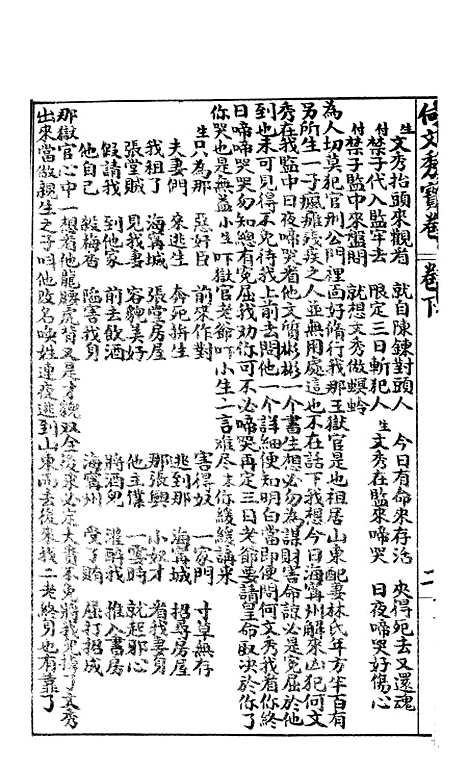 何文秀寶卷 卷下 二
生文秀抬頭來觀看 就自陳鍊對頭人 今日有命來存活 央得死去又還魂
付禁子代入監牢去 限定三日斬犯人 生文秀在監來啼哭 日夜啼哭好傷心
付禁子監中來盤問 就想文秀做螟蛉
為人切莫犯官刑公門裡面好脩行我那王獄官是也祖居山東配妻林氏年方半百有
另所生一子瘋癱殘疾之人並無用處這也不在話下我想今日海寧州解來凶犯何文
秀在我監中日夜啼哭看他文質彬彬一個書生想必勿為謀財害命諒必是寃屈於他
到也未可見得不免待我上前去問他一個詳細便知明白當即便問何文秀我看你終
日啼啼哭哭勿知總有寃屈我勸你可不必啼哭再定三日老爺要請皇命取决於你了
你哭也是無益小生吓獄官老爺吓小生一言难尽你緩緩講來
生只為那 惡奸臣 前來作對 害得奴 一家門 寸草無存
夫妻們 來逃生 奔死捹生 逃到那 海甯城 招尋房屋
我租了 海甯城 張堂房屋 那張興 小奴才 看我妻身
張堂賊 見我妻 容貌美好 他主僕 一霎時 就起邪心
假請我 到他家 前去飲酒 將酒兜 灌醉我 推入書房
他自己 殺梅香 陷害我身 海甯州 受了賄 屈打招成
那獄官心中一想看他龍腰虎背又是才貌双全後來必定大貴不免將我兒換了文秀
出來當做親生之子叫他改名喚姓連夜逃到山東而去後來我二老終身也有靠了